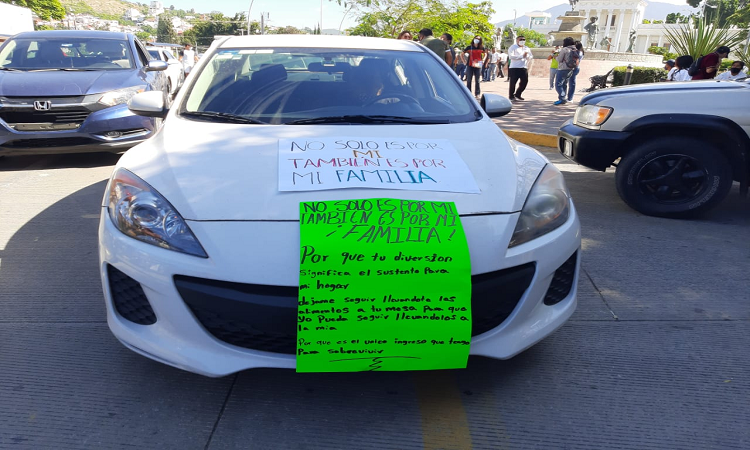 NO SOLO ES POR
MI
TAMBIEN ES POR
MI FAMILIA
NO SOLO ES POR MI
TAMBIEN ES POR MI
¡FAMILIA!
Por que tu diversion
significa el sustento Para
mi hogar
dejame seguir llevandote los
alimentos a tu mesa para que
Yo Pueda seguir llevandolos a
la mia
Por que es el unico ingreso que tengo
Para sobrevivir